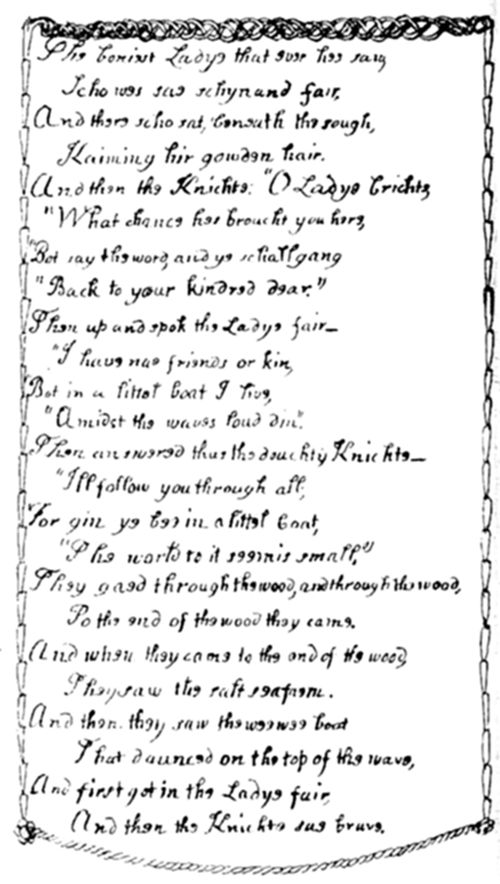 The boniest Ladye that ever hee saw,
Scho wes sae schynand fair,
And there scho sat, beneath the
Kaiming hir gowden hair.
And then the Knichte: "O Ladye brichte,
"What chance hes broucht you here,
"Bot say the word, and ye schall gang
"Back to your kindred dear."
Then up and spok the Ladye fair—
"I have nae friends or kin,
"Bot in a littel boat I live,
"Amidst the waves' loud din".
Then answered thus the douchty Knichte—
"I'll follow you through all,
"For gin ye bee in a littel boat,
"The world to it seemis small,"
They gaed through the wood, and through the wood,
To the end of the wood they came.
And when they came to the end of the wood,
They saw the salt sea faem.
And then they saw the wee wee boat
That daunced on the top of the wave,
And first got in the Ladye fair,
And then the Knichte sae brave.